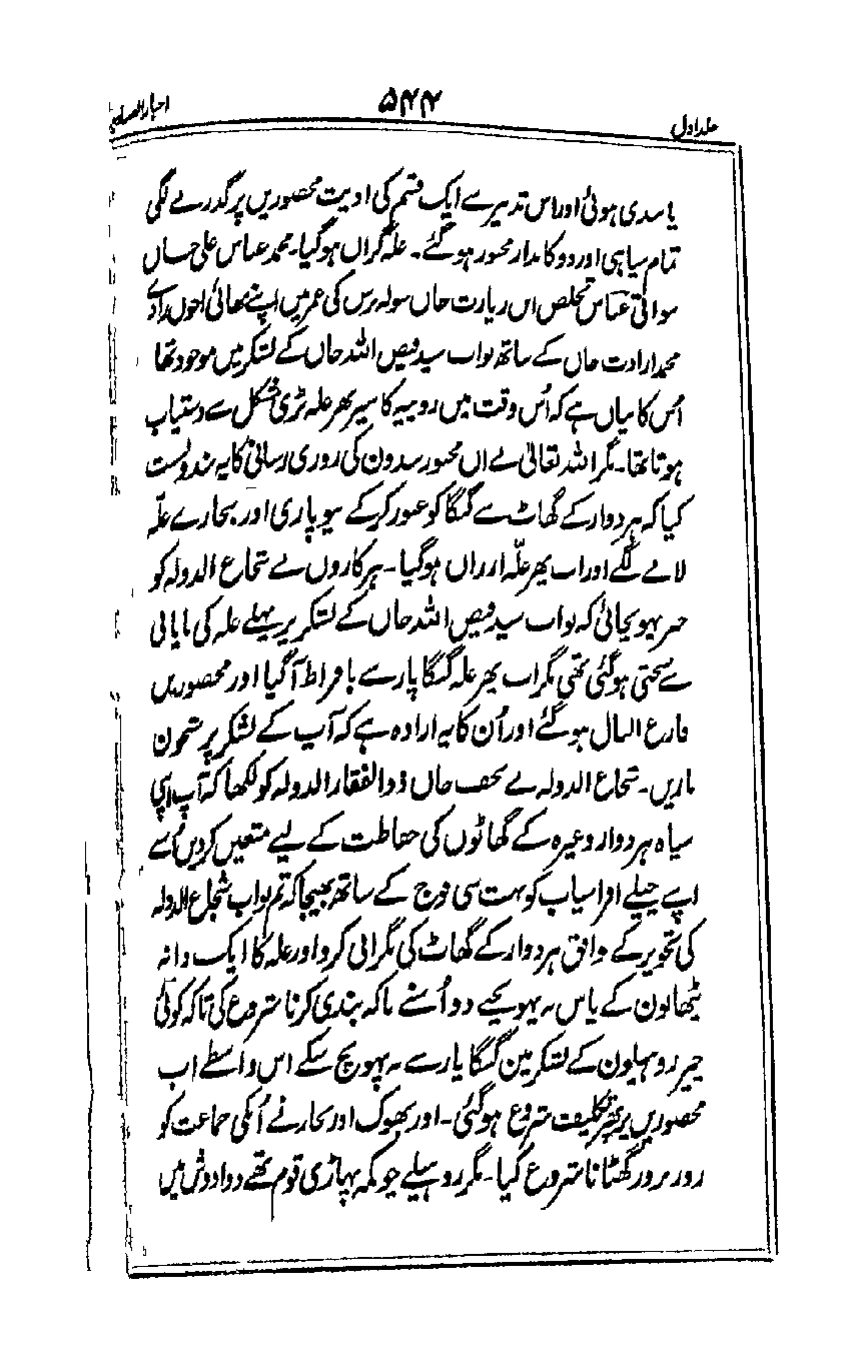 اخبار الصنادید
۵۴۴
جلد اول
یا بندی ہوئی اور اس تدبیر سے ایک قسم کی اذیت محصورین پر گذرنے لگی
تمام سپاہی اور دوکاندار مجبور ہو گئے۔ غلہ گراں ہو گیا۔ محمد عباس علی خاں
سواتی عباس تخلص ابن زیارت خاں سولہ برس کی عمر میں اپنے بھائی اخون زادے
محمد ارادت خاں کے ساتھ نواب سید فیض اللہ خاں کے لشکر میں موجود تھا
اُس کا بیاں ہے کہ اُس وقت میں روپیہ کا سیر بھر غلہ بڑی مشکل سے دستیاب
ہوتا تھا۔ مگر اللہ تعالیٰ نے ان مجبور بندون کی روزی رسانی کا یہ بندوبست
کیا کہ ہردوار کے گھاٹ سے گنگا کو عبور کرکے بیوپاری اور بنجارے غلّہ
لانے لگے اور اب پھر غلّہ ارزاں ہو گیا۔ ہرکاروں نے شجاع الدولہ کو
خبر پہونچائی کہ نواب سید فیض اللہ خاں کے لشکر پر پہلے غلہ کی نایابی
سے سختی ہو گئی تھی مگر اب پھر غلہ گنگا پار سے بافراط آ گیا اور محصورین
فارغ البال ہو گئے اور اُن کا یہ ارادہ ہے کہ آپ کے لشکر پر شبخون
ماریں۔ شجاع الدولہ نے نجف خاں ذوالفقار الدولہ کو لکھا کہ آپ اپنی
سپاہ ہردوار وغیرہ کے گھاٹوں کی حفاظت کے لیے متعین کردیں اُسنے
اپنے چیلے افراسیاب کو بہت سی فوج کے ساتھ بھیجا کہ تم نواب شجاع الدولہ
کی تجویز کے موافق ہردوار کے گھاٹ کی نگرانی کرو اور غلہ کا ایک دانہ
پٹھانون کے پاس نہ پہونچنے دو اُسنے ناکہ بندی کرنا شروع کی تاکہ کوئی
چیز روہیلون کے لشکر مین گنگا پار سے نہ پہونچ سکے اس واسطے اب
محصورین پر پھر تکلیف شروع ہو گئی۔ اور بھوک اور بخار نے اُنکی جماعت کو
روز بروز گھٹانا شروع کیا۔ مگر روہیلے چونکہ پہاڑی قوم تھے دوادوش میں